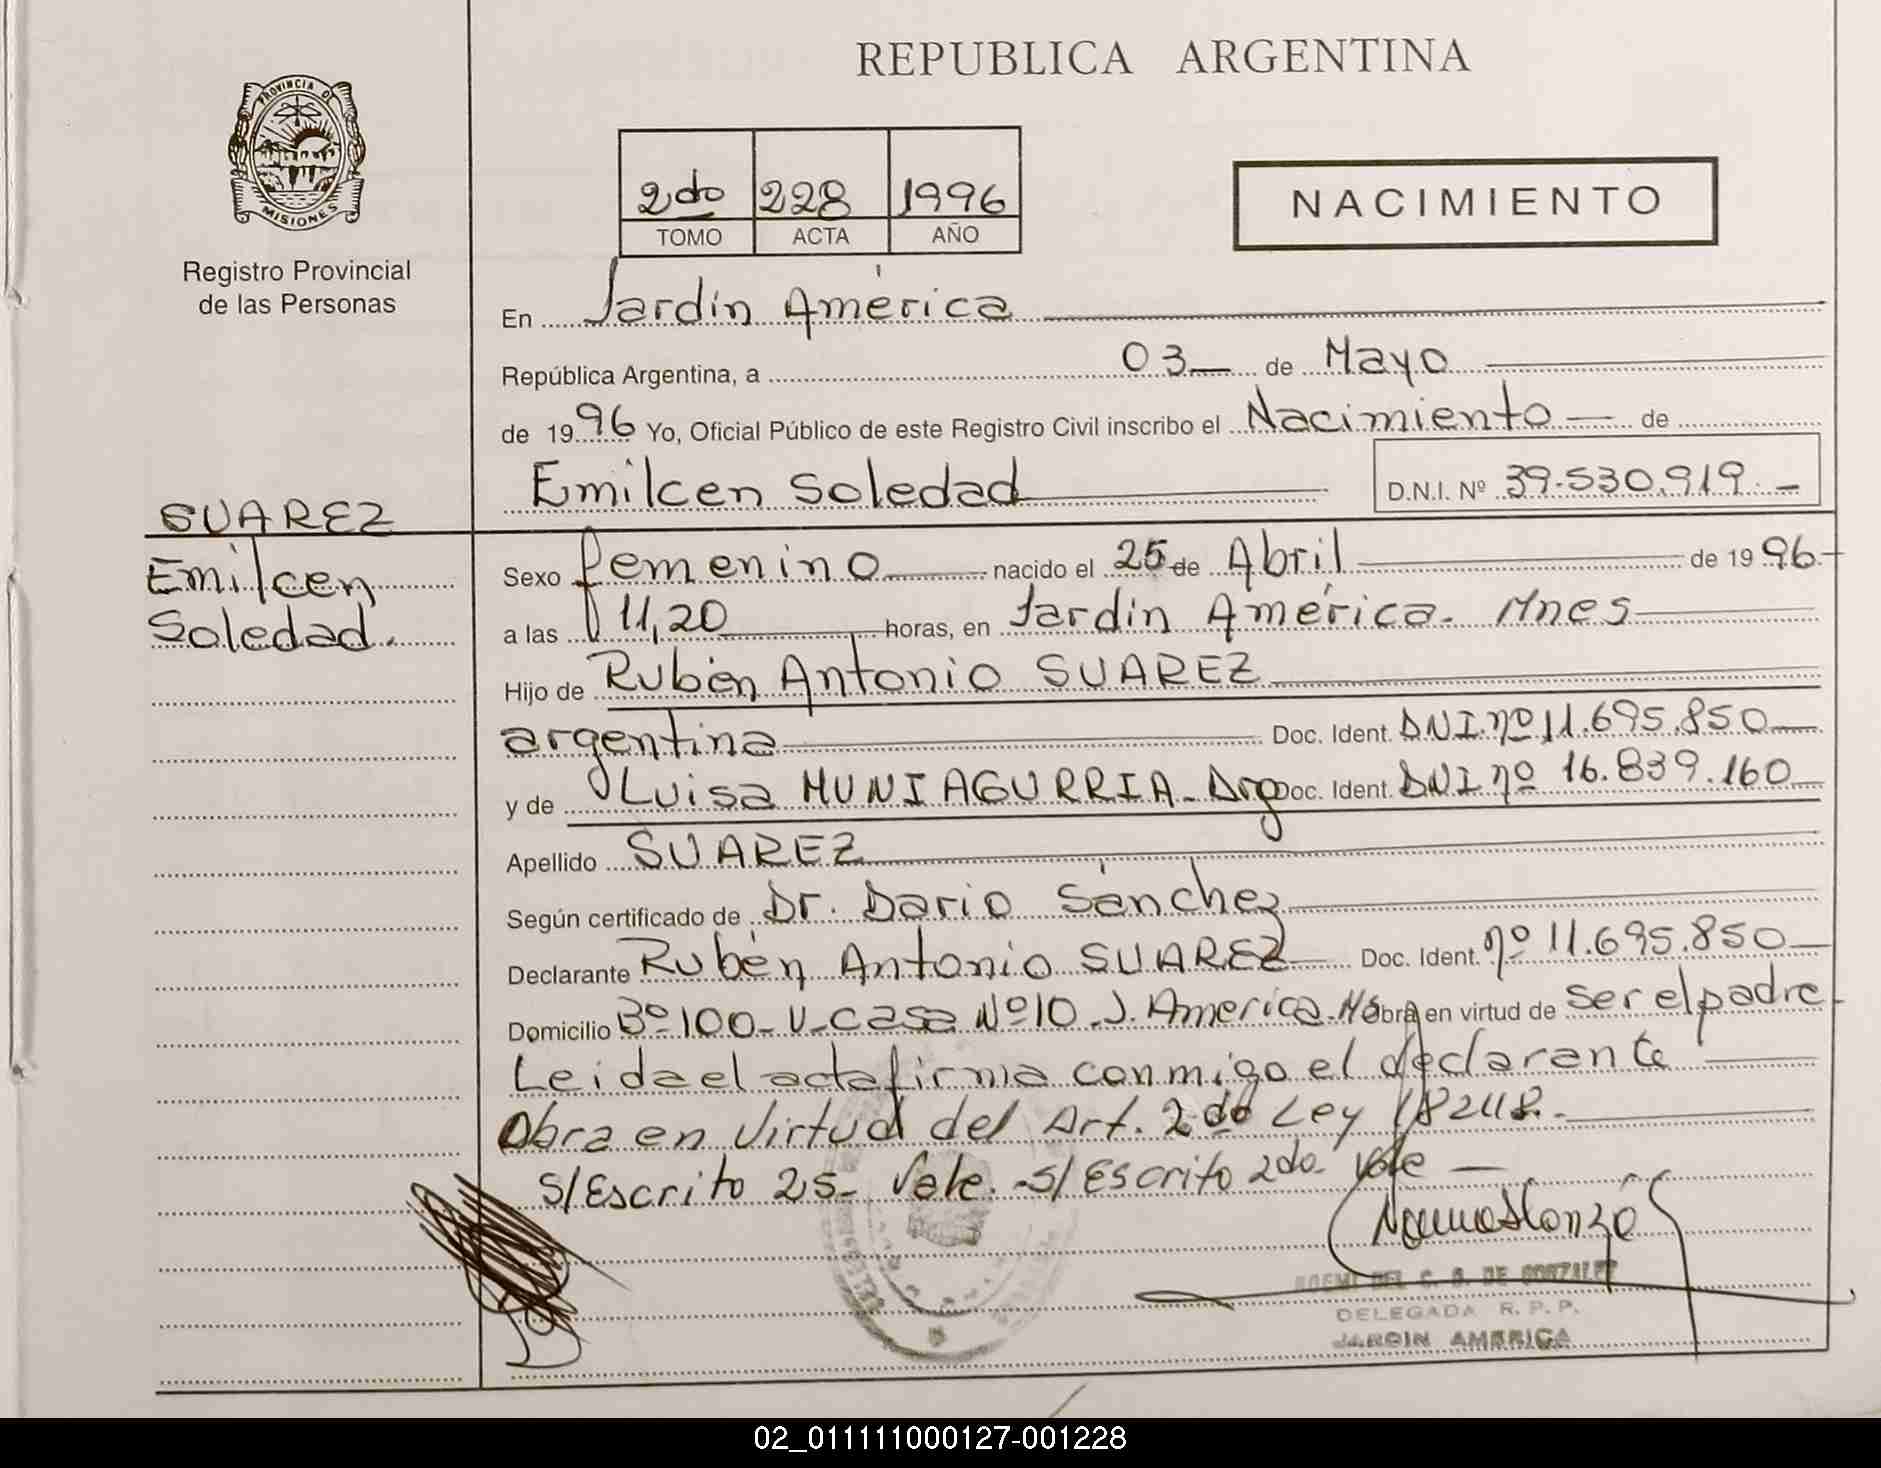 REPUBLICA ARGENTINA
PROVINCIA DE
MISIONES
Registro Provincial
de las Personas
2do 228 1996
TOMO ACTA AÑO
NACIMIENTO
En Jardín América
República Argentina, a 03 de Mayo
de 1996 Yo, Oficial Público de este Registro Civil inscribo el Nacimiento de
Emilcen Soledad D.N.I. Nº 39.530.919.-
SUAREZ
Emilcen
Soledad.
Sexo femenino nacido el 25 de Abril de 1996
a las 11,20 horas, en Jardín América. Mnes
Hijo de Rubén Antonio SUAREZ
argentina Doc. Ident. DNI. nº 11.695.850
y de Luisa MUNIAGURRIA - Arg Doc. Ident. DNI nº 16.839.160
Apellido SUAREZ
Según certificado de Dr. Dario Sánchez
Declarante Rubén Antonio SUAREZ Doc. Ident. nº 11.695.850
Domicilio Bº 100-V-casa Nº10. J. América. Ms Obra en virtud de ser el padre
Leida el acta firma conmigo el declarante
Obra en virtud del Art. 2do Ley 18248.-
S/Escrito 25- Vale. -S/Escrito 2do- Vale
NOEMI DEL C. G. DE GONZALEZ
DELEGADA R. P. P.
JARDIN AMERICA
02_011111000127-001228